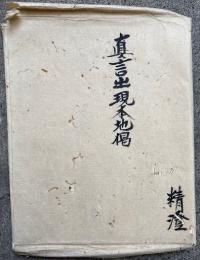 真言出現本地偈
精澄